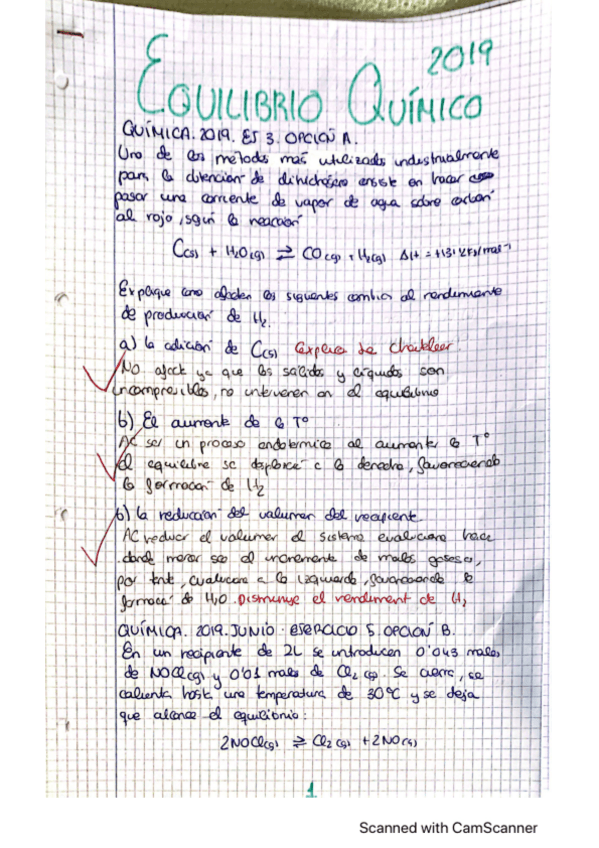 2019
EQUILIBRIO QUÍMICO
QUÍMICA. 2019. EJ 3. OPCIÓN A.
Uno de los métodos más utilizados industrialmente
para la obtención de dihidrógeno consiste en hacer
pasar una corriente de vapor de agua sobre carbón
al rojo, según la reacción
C(s) + H2O(g) ⇌ CO(g) + H2(g) ΔH = +131'2 KJ/mol⁻¹
Explique como afectan los siguientes cambios al rendimiento
de producción de H2.
a) la adición de C(s) Explica
No afecta ya que los sólidos y líquidos son
incompresibles, no intervienen en el equilibrio
b) El aumento de la Tº
Al ser un proceso endotérmico al aumentar la Tº
el equilibrio se desplaza a la derecha, favoreciendo
la formación de H2
b) la reducción del volumen del recipiente
Al reducir el volumen el sistema evoluciona hacia
donde menor sea el incremento de moles gaseosos,
por tanto, evoluciona a la izquierda, favoreciendo la
formació de H2O. Disminuye el rendiment de H2
QUÍMICA. 2019. JUNIO. EJERCICIO 5. OPCIÓN B.
En un recipiente de 2L se introducen 0'043 moles
de NOCl(g) y 0'01 moles de Cl2(g). Se cierra, se
calienta hasta una temperatura de 30ºC y se deja
que alcance el equilibrio:
2NOCl(g) ⇌ Cl2(g) + 2NO(g)
1
Scanned with CamScanner